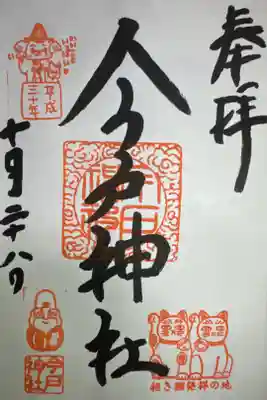 奉拝
今戸神社
平成
三十年
十月二十八日
招き猫発祥の地
今戸
神社